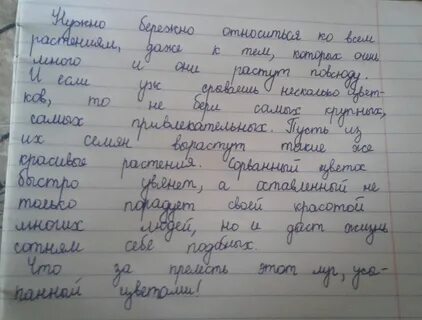 Нужно бережно относиться ко всем
растениям, даже к тем, которых очень
много и они растут повсюду.
И если уж срываешь несколько цвет-
ков, то не бери самых крупных,
самых привлекательных. Пусть из
их семян вырастут такие же
красивые растения. Сорванный цветок
быстро увянет, а оставленный не
только порадует своей красотой
многих людей, но и даст жизнь
сотням себе подобных.
Что за прелесть этот луг, усы-
панной цветами!